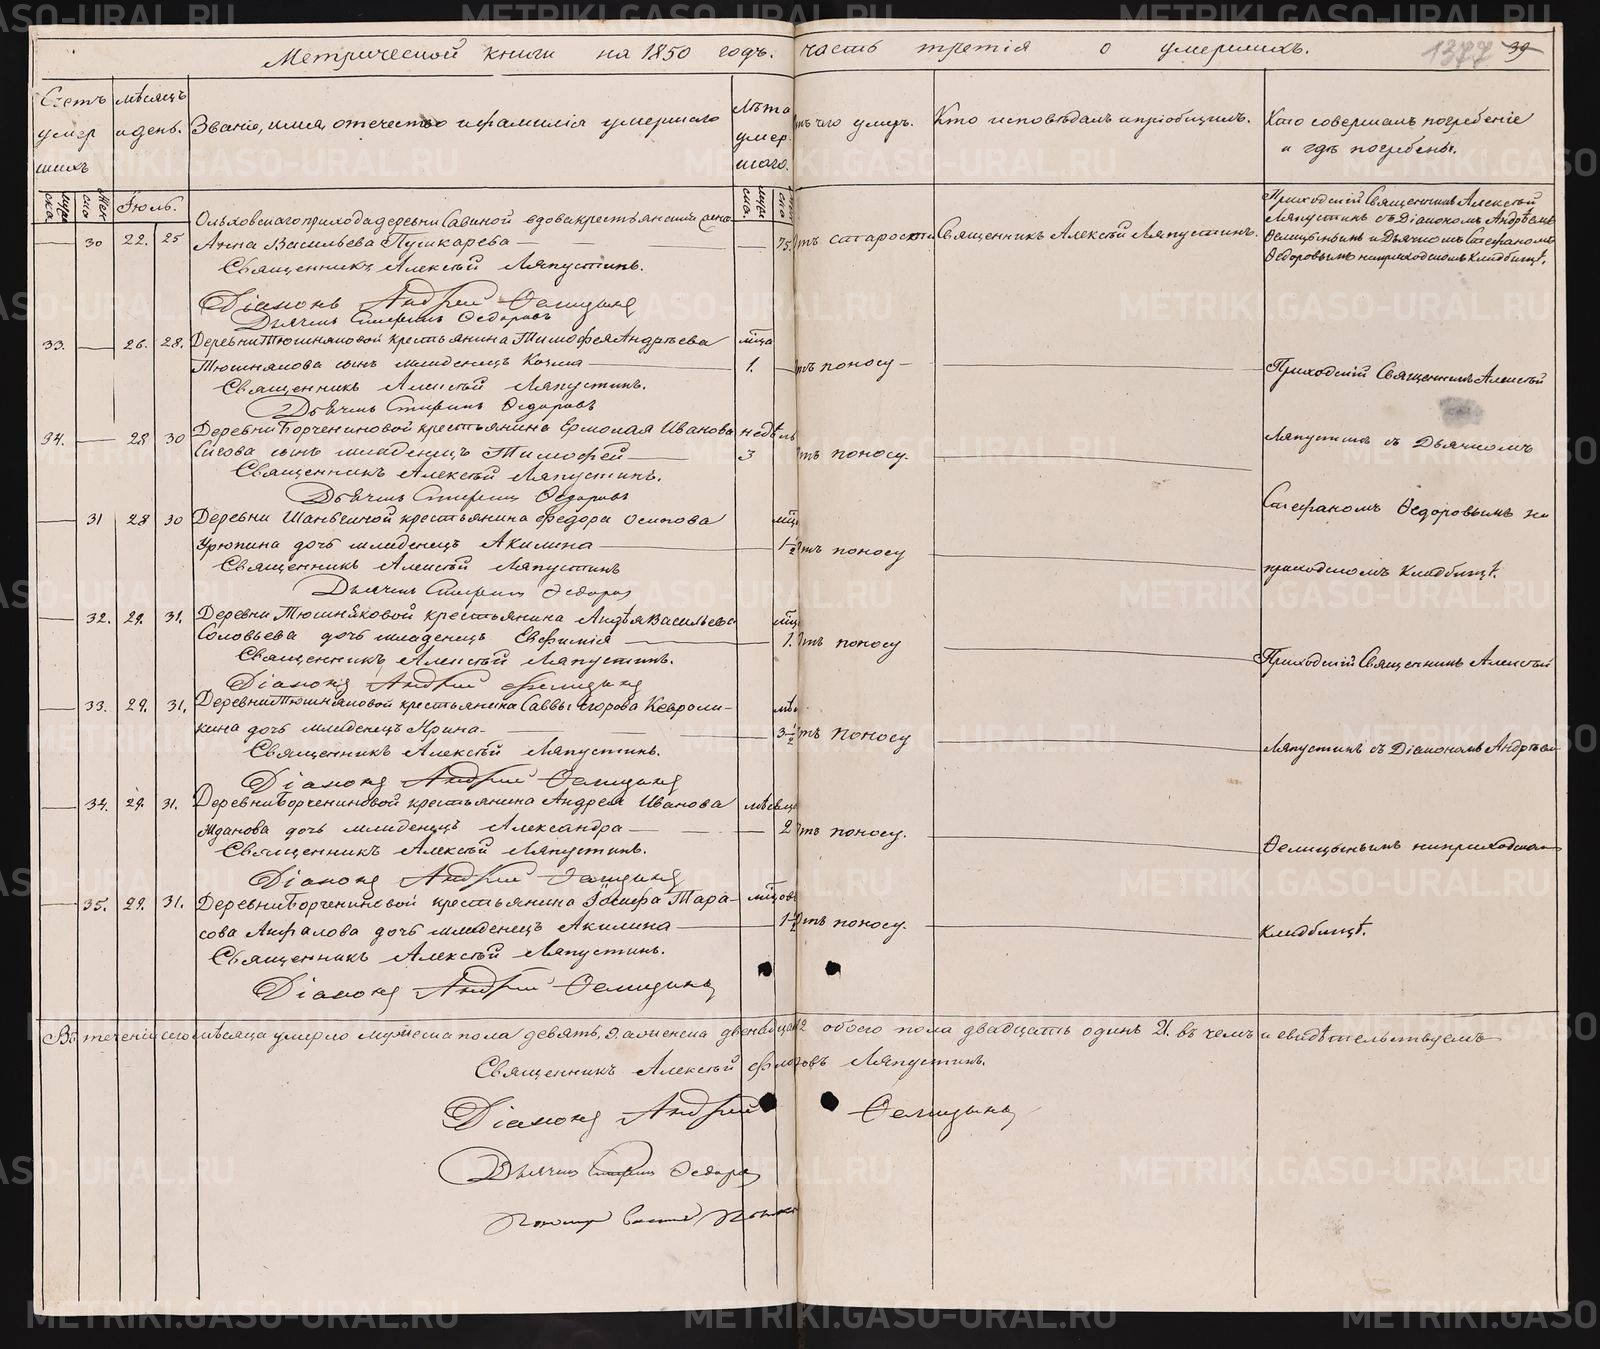 Метрической книги на 1850 годъ. часть третія о умершихъ.
1377 39
Счетъ умершихъ
мѣсяцъ и день.
Званіе, имя, отечество и фамилія умершаго
Лѣта умершаго.
Отъ чего умеръ.
Кто исповѣдалъ и пріобщилъ.
Кто совершалъ погребеніе и гдѣ погребены.
мужеска
женско
Іюль.
мужеска.
Ольховскаго прихода деревни Савиной вдова крестьянская жена
— 30 22. 25 Анна Васильева Пушкарева — 75. Отъ старости Священникъ Алексѣй Ляпустинъ.
Приходскій Священникъ Алексѣй
Ляпустинъ съ Діакономъ Андреемъ
Ѳелицынымъ и Дьячкомъ Стефаномъ
Ѳедоровымъ на приходскомъ кладбищѣ.
Священникъ Алексѣй Ляпустинъ.
Діаконъ Андрей Ѳелицынъ
Дьячекъ Стефанъ Ѳедоровъ
33. — 26. 28. Деревни Тюшняковой крестьянина Тимофея Андрѣева мца
Тюшнякова сынъ младенецъ Козма — 1. — Отъ поносу —
Приходскій Священникъ Алексѣй
Священникъ Алексѣй Ляпустинъ.
Дьячекъ Стефанъ Ѳедоровъ
34. — 28 30 Деревни Борчениновой крестьянина Ермолая Иванова недѣль
Сисова сынъ младенецъ Тимофей — 3 Отъ поносу.
Ляпустинъ съ Дьячкомъ
Священникъ Алексѣй Ляпустинъ.
Дьячекъ Стефанъ Ѳедоровъ
— 31 28 30 Деревни крестьянина Федора Осипова мца
Урюпина дочь младенецъ Акилина — 1½ Отъ поносу
Стефаномъ Ѳедоровымъ на
приходскомъ кладбищѣ.
Священникъ Алексѣй Ляпустинъ
Дьячекъ Стефанъ Ѳедоровъ
— 32. 29. 31. Деревни Тюшняковой крестьянина Андрея Васильева мца
Соловьева дочь младенецъ Евфимія — 1. Отъ поносу
Приходскій Священникъ Алексѣй
Священникъ Алексѣй Ляпустинъ.
Діаконъ Андрей Фелицынъ
— 33. 29. 31. Деревни Тюшняковой крестьянина Саввы Егорова Кевроли-
кина дочь младенецъ Ирина — 3½ Отъ поносу
Ляпустинъ съ Діакономъ Андрѣемъ
Священникъ Алексѣй Ляпустинъ.
Діаконъ Андрей Ѳелицынъ
— 34. 29. 31. Деревни Борчениновой крестьянина Андрея Иванова мѣсяца
Жданова дочь младенецъ Александра — 2 Отъ поносу.
Ѳелицынымъ на приходскомъ
Священникъ Алексѣй Ляпустинъ.
Діаконъ Андрей Ѳелицынъ
— 35. 29. 31. Деревни Борчениновой крестьянина Іосифа Тара- мцовъ
сова Анфалова дочь младенецъ Акилина — 1½ Отъ поносу.
кладбищѣ.
Священникъ Алексѣй Ляпустинъ.
Діаконъ Андрей Ѳелицынъ
Въ теченіи сего мѣсяца умерло мужеска пола девять, 9. а женска двенадцать 12 обоего пола двадцать одинъ 21. въ чемъ и свидѣтельствуемъ
Священникъ Алексѣй Фловъ Ляпустинъ.
Діаконъ Андрей Ѳелицынъ
Дьячекъ Стефанъ Ѳедоровъ
METRIKI.GASO-URAL.RU